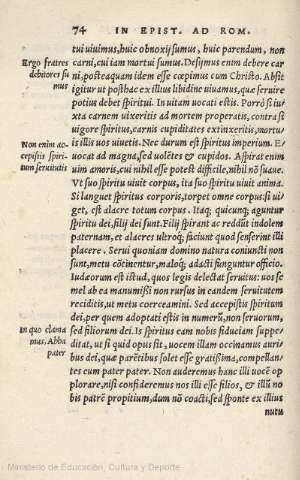 74 IN EPIST. AD ROM.
tui uiuimus, huic obnoxij sumus, huic parendum, non
Ergo fratres
carni, cui iam mortui sumus. Desijmus enim debere car
debitores su
ni, posteaquam idem esse cœpimus cum Christo. Absit
mus
igitur ut posthac ex illius libidine uiuamus, quæ seruire
potius debet spiritui. In uitam uocati estis. Porrò si iux
ta carnem uixeritis ad mortem properatis, contra si
uigore spiritus, carnis cupiditates extinxeritis, mortu
is illis uos uiuetis. Nec durum est spiritus imperium. E
Non enim ac-
uocat ad magna, sed uolētes & cupidos. Aspirat enim
cepistis spiri-
uim amoris, cui nihil esse potest difficile, nihil nō suaue.
tum seruitutis
Vt suo spiritu uiuit corpus, ita suo spiritu uiuit anima.
Si languet spiritus corporis, torpet omne corpus: si ui
get, est alacre totum corpus. Itaq; quicunq; aguntur
spiritu dei, filij dei sunt. Filij spirant ac reddūt indolem
paternam, et alacres ultroq; faciunt quod senserint illi
placere. Serui quoniam domino natura coniuncti non
sunt, metu cōtinentur, maloq; adacti funguntur officio.
Iudæorum est istud, quos legis delectat seruitus: uos se
mel ab ea manumissi non rursus in eandem seruitutem
reciditis, ut metu coerceamini. Sed accepistis spiritum
dei, per quem adoptati estis in numerū, non seruorum,
In quo clama
sed filiorum dei. Is spiritus eam nobis fiduciam suppe-
mus, Abba
ditat, ut si quid opus sit, uocem illam occinamus auri
pater
bus dei, quæ parētibus solet esse gratissima, compellan
tes cum pater pater. Non auderemus hanc illi uocē op
plorare, nisi confideremus nos illi esse filios, & illū no
bis patrē propitium, dum nō coacti, sed sponte ex illius
nutu
Ministerio de Educación, Cultura y Deporte